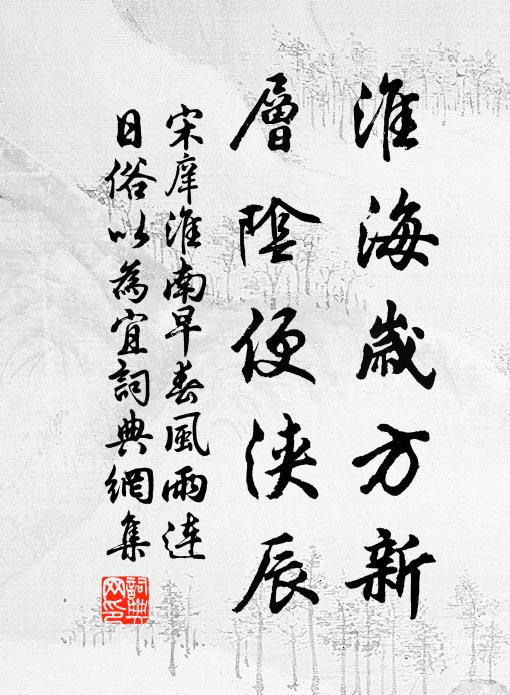 淮海歲方新
層陰便浹辰
宋庠淮南早春風雨連
日俗以為宜詞典網集